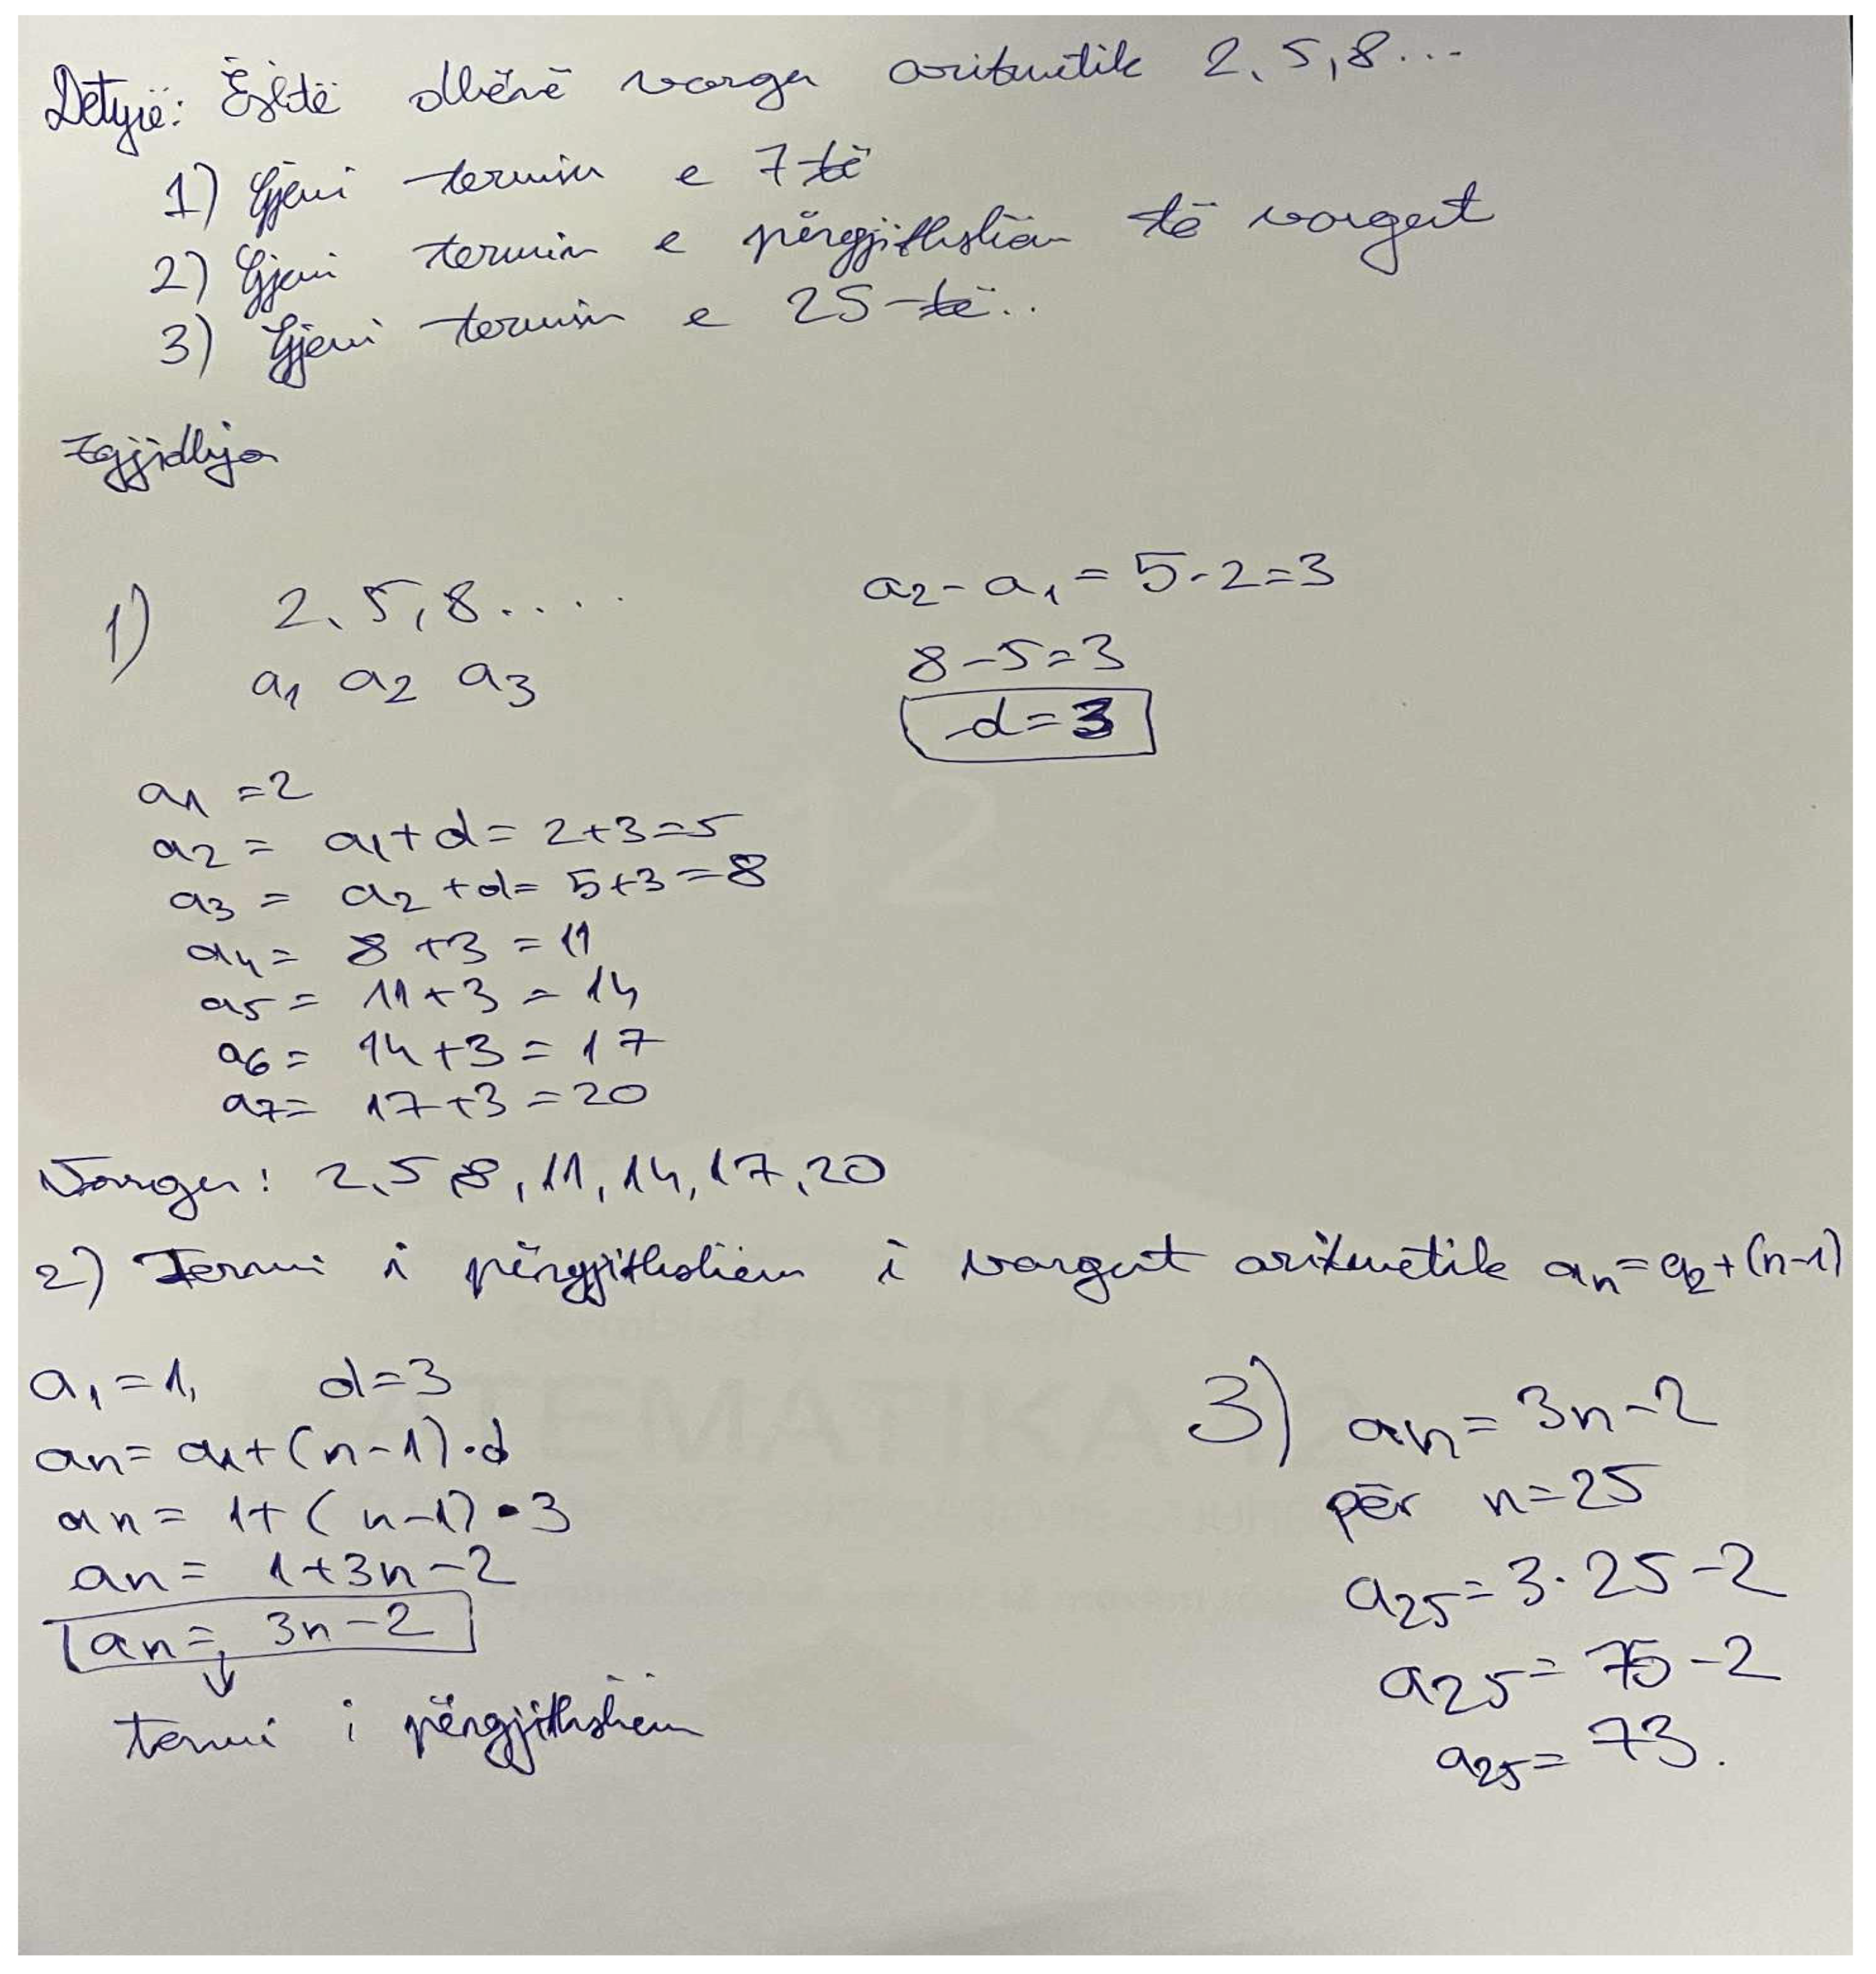 Detyrë: Është dhënë vargu aritmetik 2, 5, 8...
1) Gjeni termin e 7-të
2) Gjeni termin e përgjithshëm të vargut
3) Gjeni termin e 25-të..
Zgjidhja
1) 2, 5, 8....
a1 a2 a3
a2 - a1 = 5-2=3
8-5=3
d=3
a1 =2
a2 = a1+d= 2+3=5
a3 = a2 +d= 5+3=8
a4= 8 +3 = 11
a5= 11+3 = 14
a6= 14+3= 17
a7= 17+3=20
Vargu: 2, 5, 8, 11, 14, 17, 20
2) Termi i përgjithshëm i vargut aritmetik an=a2+(n-1)
a1=1, d=3
an= a1+(n-1)·d
an= 1+(n-1)·3
an= 1+3n-2
an= 3n-2
↓
termi i përgjithshëm
3) an= 3n-2
për n=25
a25=3·25-2
a25=75-2
a25=73.
MATEMATIKA 12